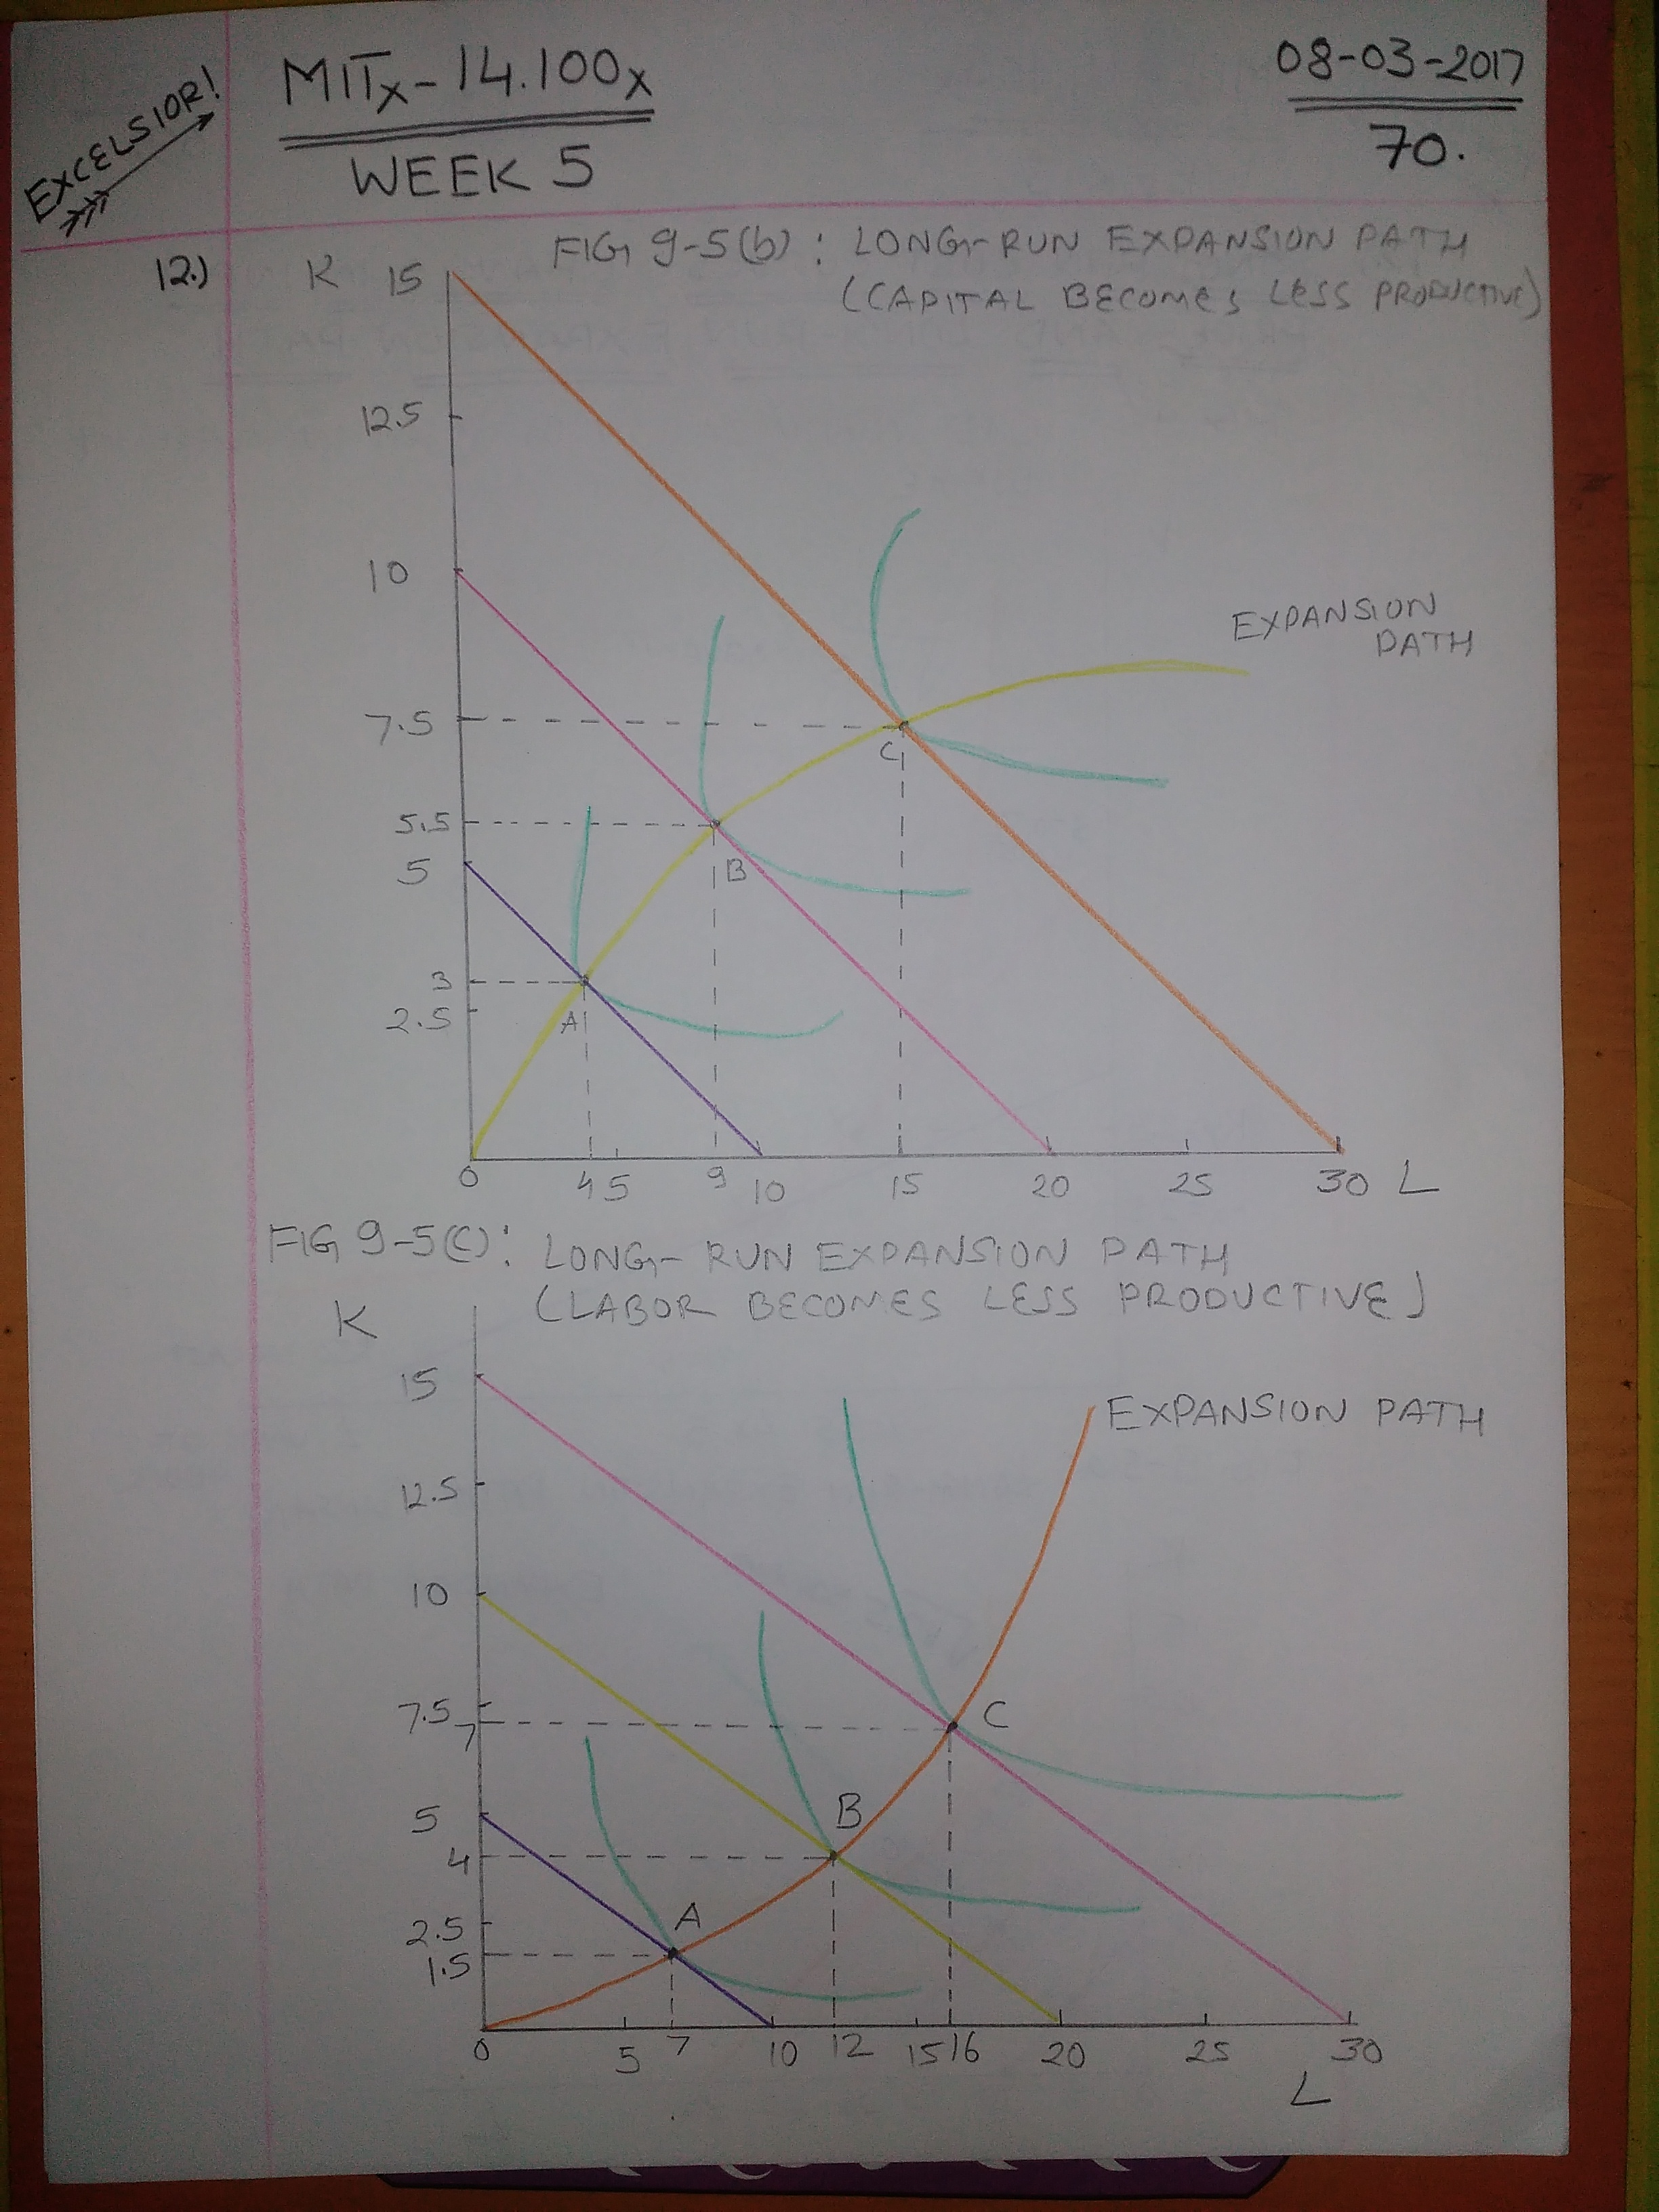 EXCELSIOR!
MITx-14.100x
WEEK 5
08-03-2017
70.
12.)
FIG 9-5(b): LONG-RUN EXPANSION PATH
(CAPITAL BECOMES LESS PRODUCTIVE)
K
15
12.5
10
EXPANSION
PATH
7.5
C
5.5
B
5
3
2.5
A
0 4 5 9 10 15 20 25 30 L
FIG 9-5(C): LONG-RUN EXPANSION PATH
(LABOR BECOMES LESS PRODUCTIVE)
K
15
EXPANSION PATH
12.5
10
7.5
7
C
5
B
4
2.5
A
1.5
0 5 7 10 12 15 16 20 25 30
L